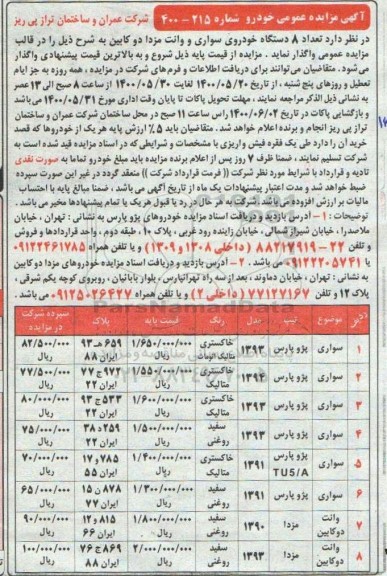 آگهی مزایده عمومی خودرو شماره ۲۱۵ - ۴۰۰ شرکت عمران و ساختمان تراز پی ریز
در نظر دارد تعداد ۸ دستگاه خودروی سواری و وانت مزدا دو کابین به شرح ذیل را در قالب
مزایده عمومی واگذار نماید . مزایده از قیمت پایه ذیل شروع و به بالاترین قیمت پیشنهادی واگذار
می‌شود. متقاضیان می‌توانند برای دریافت اطلاعات و فرم‌های شرکت در مزایده ، همه روزه به جز ایام
تعطیل و روزهای پنج شنبه ، از تاریخ ۱۴۰۰/۰۵/۲۰ لغایت ۱۴۰۰/۰۵/۳۰ از ساعت ۸ صبح الی ۱۳ عصر
به نشانی ذیل الذکر مراجعه نمایند ، مهلت تحویل پاکات تا پایان وقت اداری مورخ ۱۴۰۰/۰۵/۳۱ می‌باشد
و بازگشایی پاکات در تاریخ ۱۴۰۰/۰۶/۰۲ راس ساعت ۱۱ صبح در محل ساختمان شرکت عمران و ساختمان
تراز پی ریز انجام و برنده اعلام خواهد شد. متقاضیان باید ۵٪ ارزش پایه هر یک از خودروها که قصد
خرید آن را دارد طی یک فقره فیش واریزی با مشخصات و شرایطی که در اسناد مزایده قید شده است به
شرکت تسلیم نمایند ، ضمنا ظرف ۷ روز پس از اعلام برنده مزایده باید مبلغ خودرو تماما به صورت نقدی
تادیه و قرارداد با شرایط مورد نظر شرکت (( فرمت قرارداد شرکت )) منعقد گردد در غیر این صورت سپرده
ضبط خواهد شد و مدت اعتبار پیشنهادات یک ماه از تاریخ آگهی می‌باشد ، ضمنا مبالغ پایه با احتساب
مالیات بر ارزش افزوده می‌باشد. شرکت به هر حال در رد یا قبول هر یک یا تمام پیشنهادها مخیر می باشد .
توضیحات : ۱- آدرس بازدید و دریافت اسناد مزایده خودروهای پژو پارس به نشانی : تهران ، خیابان
ملاصدرا ، خیابان شیراز شمالی ، خیابان زاینده رود غربی ، پلاک ۱۰ ، طبقه دوم ، واحد قراردادها و فروش
و یا تلفن ۲۲-۸۸۲۱۷۹۱۹ (داخلی ۱۳۰۸ و ۱۳۰۹) و یا تلفن همراه ۰۹۱۲۲۴۶۱۷۸۵
یا ۰۹۱۲۲۲۰۵۷۴۱ می باشد . ۲- آدرس بازدید و دریافت اسناد مزایده خودروهای مزدا دو کابین
به نشانی : تهران ، خیابان دماوند ، بعد از سه راه تهرانپارس ، بلوار بابائیان ، روبروی کوچه یکم شرقی ،
پلاک ۱۲ و تلفن ۷۷۱۲۷۱۶۷ (داخلی ۲) و یا تلفن همراه ۰۹۱۲۵۰۲۶۴۲۷ می باشد .
ردیف موضوع تیپ مدل رنگ قیمت پایه پلاک سپرده شرکت در مزایده
۱ سواری پژو پارس ۱۳۹۳ خاکستری متالیک ۱/۶۵۰/۰۰۰/۰۰۰ ریال ۶۵۹ هـ ۹۳ ایران ۸۸ ۸۲/۵۰۰/۰۰۰ ریال
۲ سواری پژو پارس ۱۳۹۲ خاکستری متالیک ۱/۵۵۰/۰۰۰/۰۰۰ ریال ۹۱۲ ج ۷۷ ایران ۲۲ ۷۷/۵۰۰/۰۰۰ ریال
۳ سواری پژو پارس ۱۳۹۳ خاکستری متالیک ۱/۶۰۰/۰۰۰/۰۰۰ ریال ۵۳۳ ج ۹۳ ایران ۲۲ ۸۰/۰۰۰/۰۰۰ ریال
۴ سواری پژو پارس ۱۳۹۳ سفید روغنی ۱/۵۰۰/۰۰۰/۰۰۰ ریال ۲۵۹ د ۳۸ ایران ۲۲ ۷۵/۰۰۰/۰۰۰ ریال
۵ سواری پژو پارس TU5/A ۱۳۹۱ خاکستری متالیک ۱/۴۰۰/۰۰۰/۰۰۰ ریال ۷۸۵ و ۱۷ ایران ۵۵ ۷۰/۰۰۰/۰۰۰ ریال
۶ سواری پژو پارس ۱۳۹۱ سفید روغنی ۱/۳۰۰/۰۰۰/۰۰۰ ریال ۸۷۸ ن ۱۵ ایران ۷۷ ۶۵/۰۰۰/۰۰۰ ریال
۷ وانت دوکابین مزدا ۱۳۹۰ سفید روغنی ۱/۸۰۰/۰۰۰/۰۰۰ ریال ۸۱۵ و ۱۲ ایران ۶۶ ۹۰/۰۰۰/۰۰۰ ریال
۸ وانت دوکابین مزدا ۱۳۹۳ سفید روغنی ۲/۰۰۰/۰۰۰/۰۰۰ ریال ۸۶۹ ج ۷۶ ایران ۸۸ ۱۰۰/۰۰۰/۰۰۰ ریال